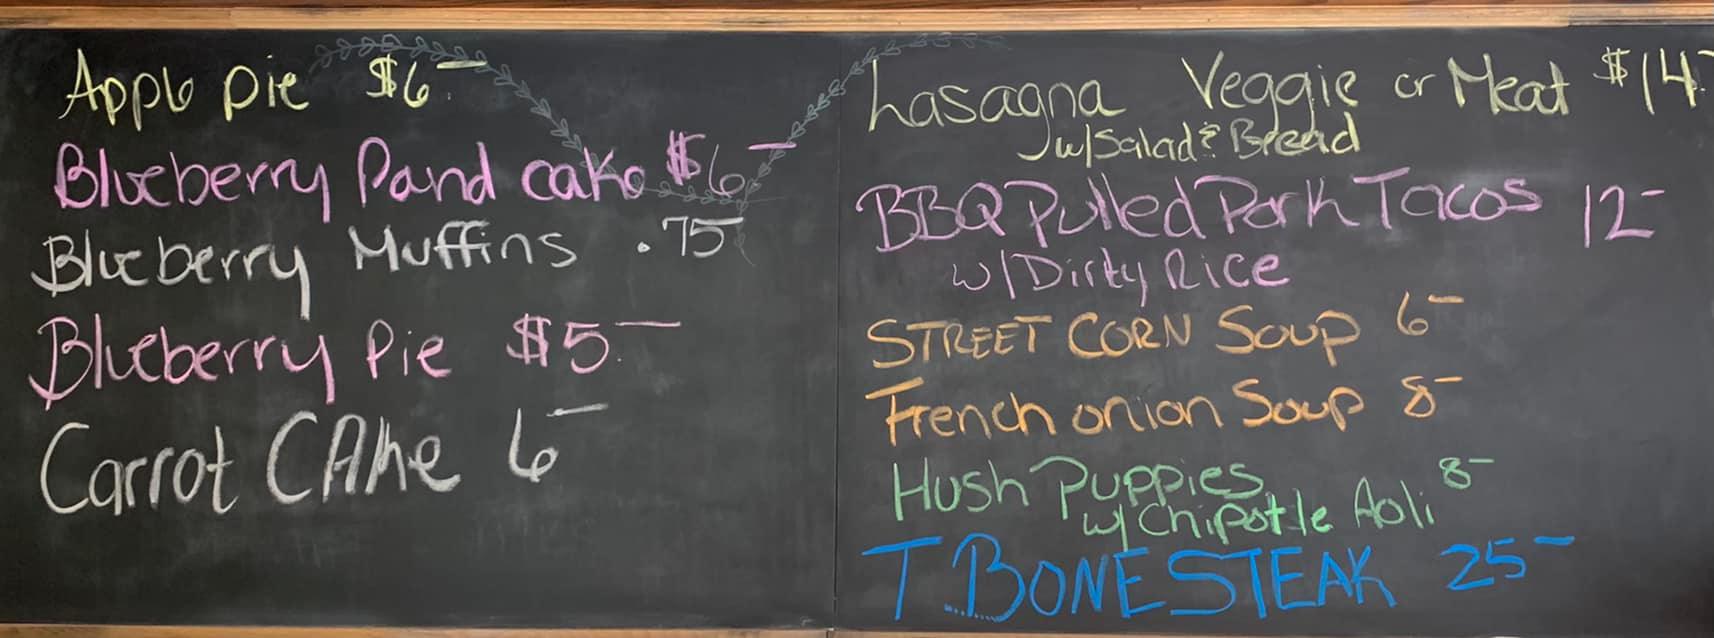 Apple pie $6-
Blueberry Pand cake $6-
Blueberry Muffins .75
Blueberry Pie $5.-
Carrot CAke 6-
Lasagna Veggie or Meat $14
w/Salad & Bread
BBQ Pulled Pork Tacos 12-
w/Dirty Rice
STREET CORN Soup 6-
French onion Soup 8-
Hush Puppies 8-
w/ Chipotle Aoli
T.BONE STEAK 25-